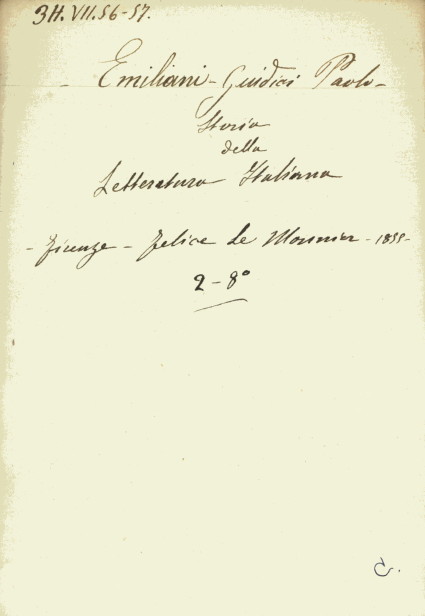 3H.VII.56-57.
- Emiliani-Giudici Paolo -
Storia
della
Letteratura Italiana
- Firenze - Felice Le Monnier - 1855 -
2 - 8°
C.